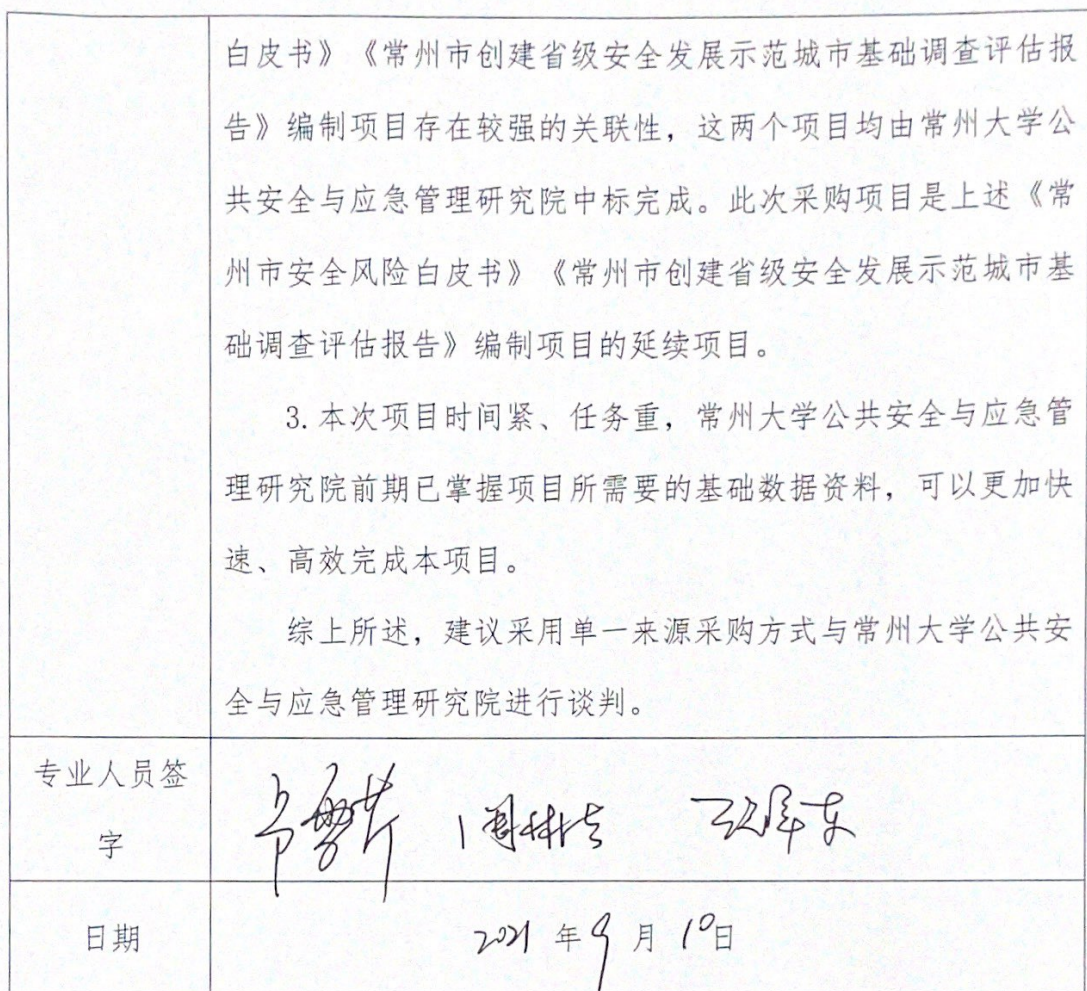 白皮书》《常州市创建省级安全发展示范城市基础调查评估报
告》编制项目存在较强的关联性，这两个项目均由常州大学公
共安全与应急管理研究院中标完成。此次采购项目是上述《常
州市安全风险白皮书》《常州市创建省级安全发展示范城市基
础调查评估报告》编制项目的延续项目。
3.本次项目时间紧、任务重，常州大学公共安全与应急管
理研究院前期已掌握项目所需要的基础数据资料，可以更加快
速、高效完成本项目。
综上所述，建议采用单一来源采购方式与常州大学公共安
全与应急管理研究院进行谈判。
专业人员签
字
日期
2021 年 9 月 10日